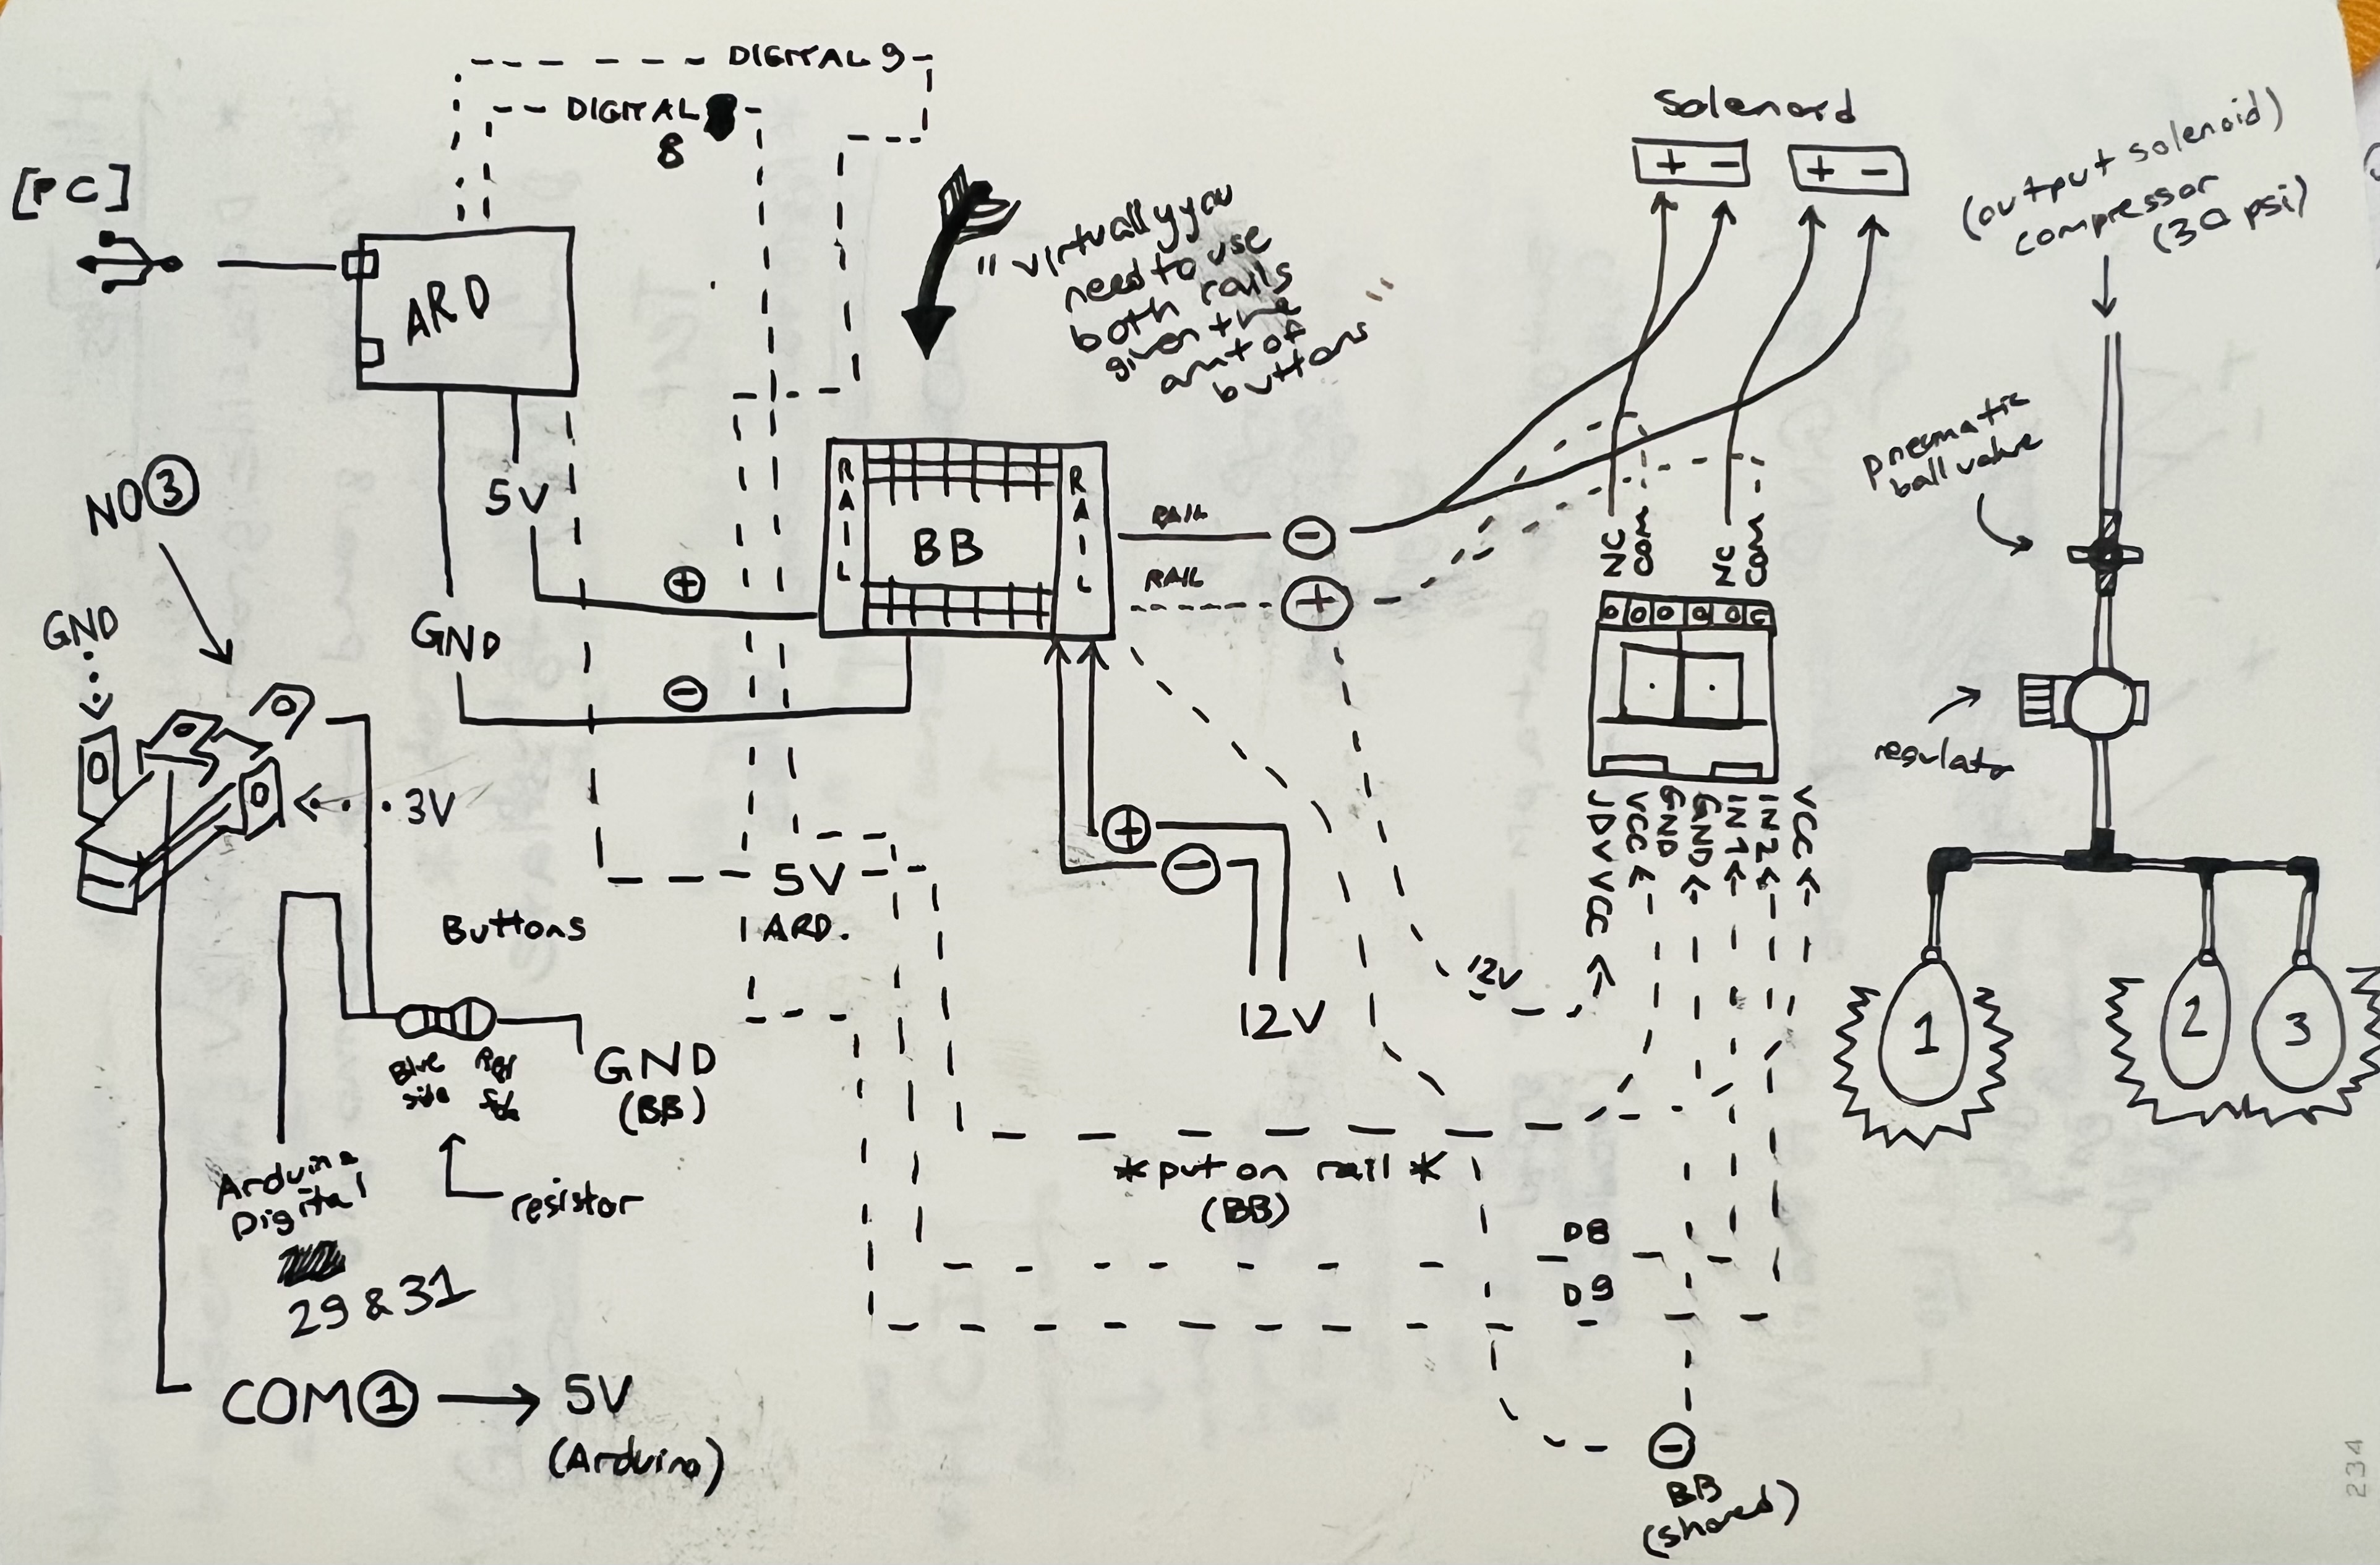 DIGITAL 9
DIGITAL
8
[PC]
ARD
5V
GND
NO ③
GND
3V
Buttons
Blue
side
GND
(BB)
resistor
Arduino
Digital
29 & 31
COM ①
5V
(Arduino)
"virtually you
need to use
both rails
given the
amt of
buttons"
RAIL
BB
RAIL
+
-
RAIL
-
RAIL
+
5V
ARD.
+
-
12V
12V
*put on rail*
(BB)
D8
D9
-
BB
(shared)
Solenoid
+ -
+ -
NC
COM
NC
COM
JDVCC
VCC
GND
GND
IN1
IN2
VCC
(output solenoid)
compressor
(30 psi)
pneumatic
ball valve
regulator
1
2
3
234